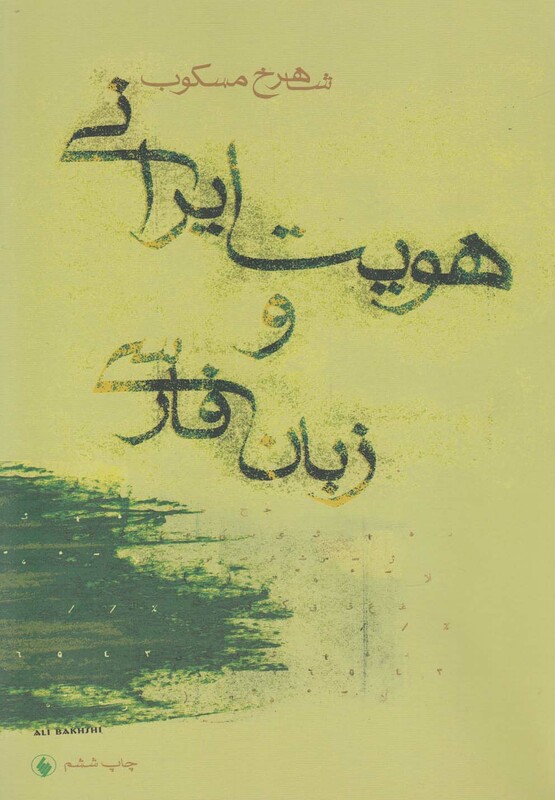 شاهرخ مسکوب
هویت ایرانی
و
زبان فارسی
ALI BAKHSHI
چاپ ششم